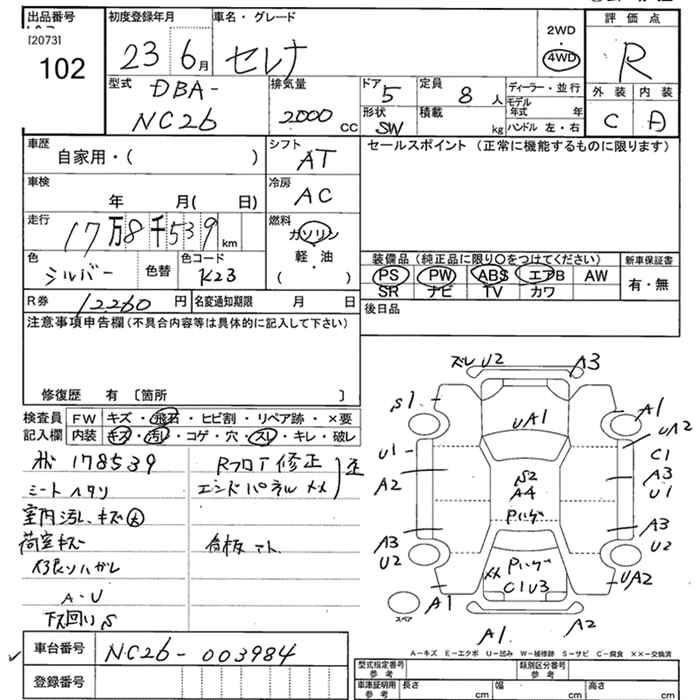 出品番号
[2073]
102
初度登録年月
23 6月
車名・グレード
セレナ
2WD
・
4WD
評価点
R
外装 内装
C D
型式
DBA-
NC26
排気量
2000 CC
ドア 5
形状 SW
定員 8 人
積載 kg
ディーラー・並行
モデル年式 年
ハンドル 左・右
車歴
自家用・( )
シフト
AT
セールスポイント (正常に機能するものに限ります)
車検
年 月( 日)
冷房
AC
走行
17万8千539 km
燃料
ガソリン
軽・油
( )
色
シルバー
色替
色コード
K23
装備品 (純正品に限り○をつけてください)
PS PW ABS エアB AW
SR ナビ TV カワ
新車保証書
有・無
R券 12,260 円
名変通知期限 月 日
後日品
注意事項申告欄 (不具合内容等は具体的に記入して下さい)
修復歴 有 〔箇所 〕
検査員
記入欄
FW キズ・飛石・ヒビ割・リペア跡・×要
内装 キズ・汚レ・コゲ・穴・スレ・キレ・破レ
178539
シートヘタリ
室内汚レ、キズ大
荷室キズ
ハガレ
A・U
下回りS
Rフロア修正
エンドパネルメメ
ズレ U2
A3
S1
A1
UA1
UA2
U1
C1
A2
A3
U1
S2
A4
Pハゲ
A3
U2
A3
U2
Pハゲ
メメ
C1U3
A1
UA2
スペア
A1
A2
車台番号 NC26-003984
登録番号
A-キズ E-エクボ U-凹み W-補修跡 S-サビ C-腐食 ××-交換済
型式指定番号 参考
類別区分番号 参考
車漕証明用 参考
長さ cm
幅 cm
高さ cm